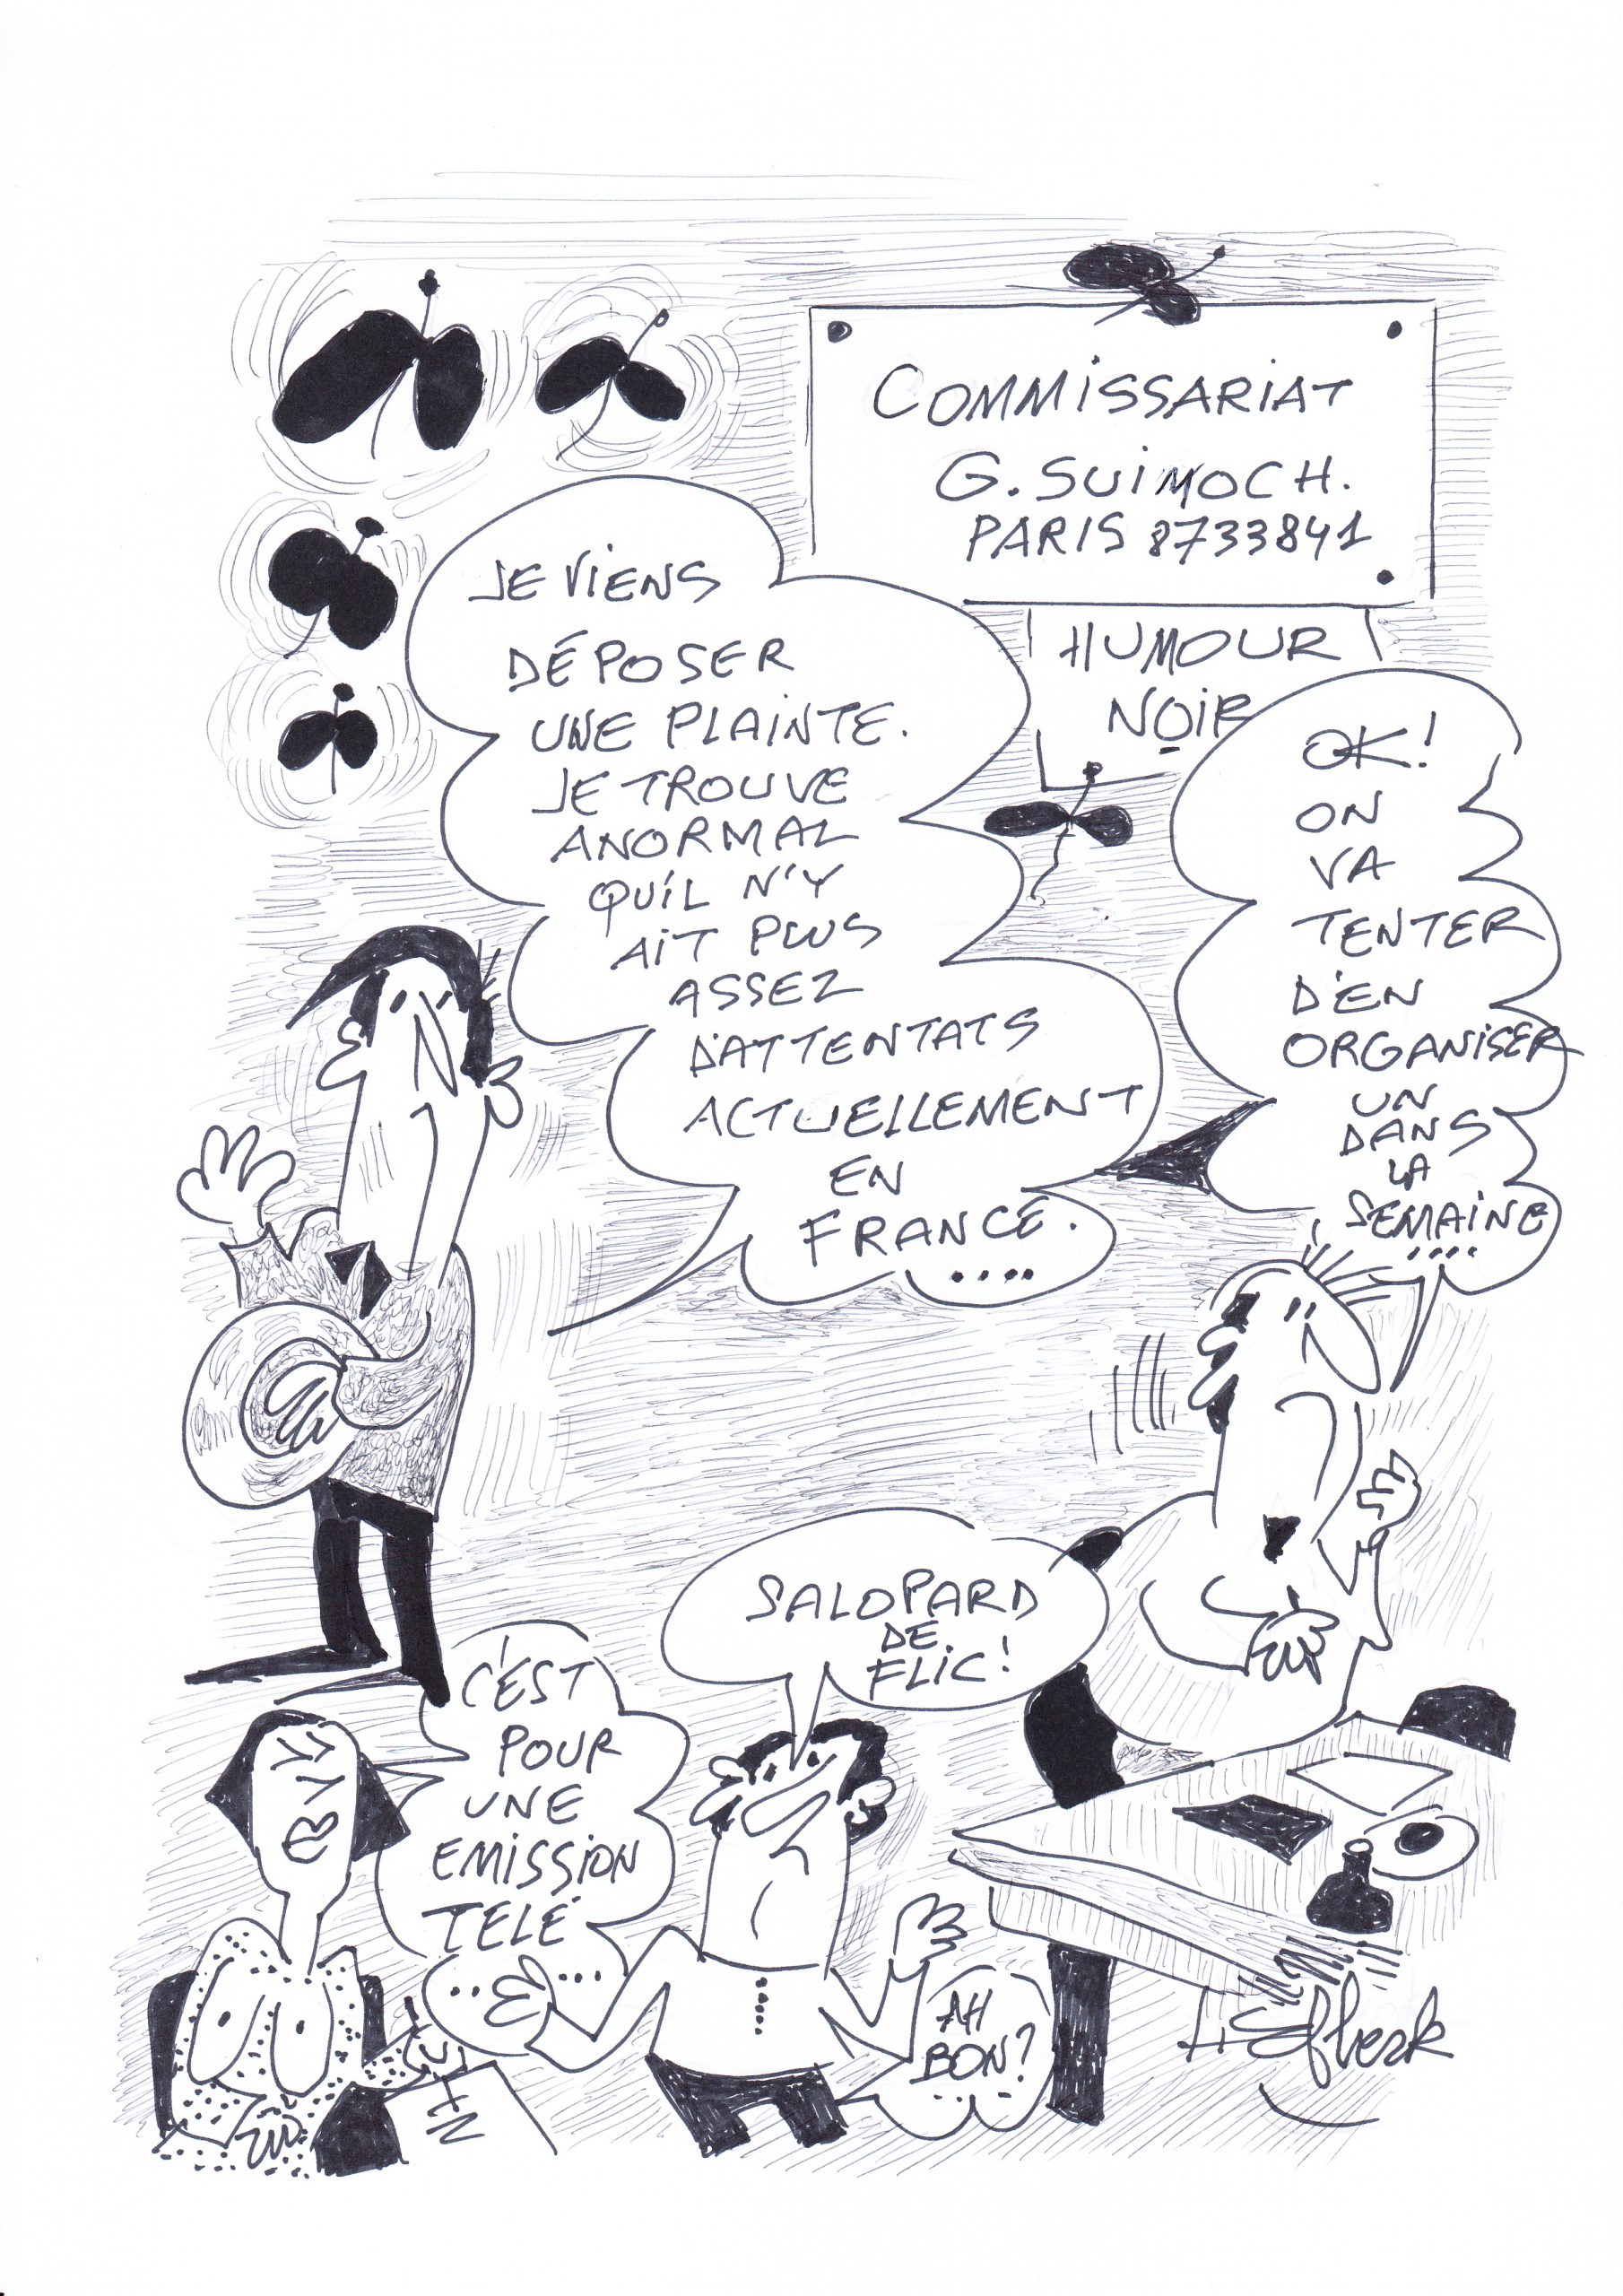 COMMISSARIAT
G. SUiMOCH.
PARIS 8733841
HUMOUR
NOIR
JE VIENS
DÉPOSER
UNE PLAINTE.
JE TROUVE
ANORMAL
QU'IL N'Y
AIT PLUS
ASSEZ
D'ATTENTATS
ACTUELLEMENT
EN
FRANCE.
....
OK!
ON
VA
TENTER
D'EN
ORGANISER
UN
DANS
LA
SEMAINE
....
SALOPARD
DE
FLIC!
C'EST
POUR
UNE
EMISSION
TELÉ
AH
BON?